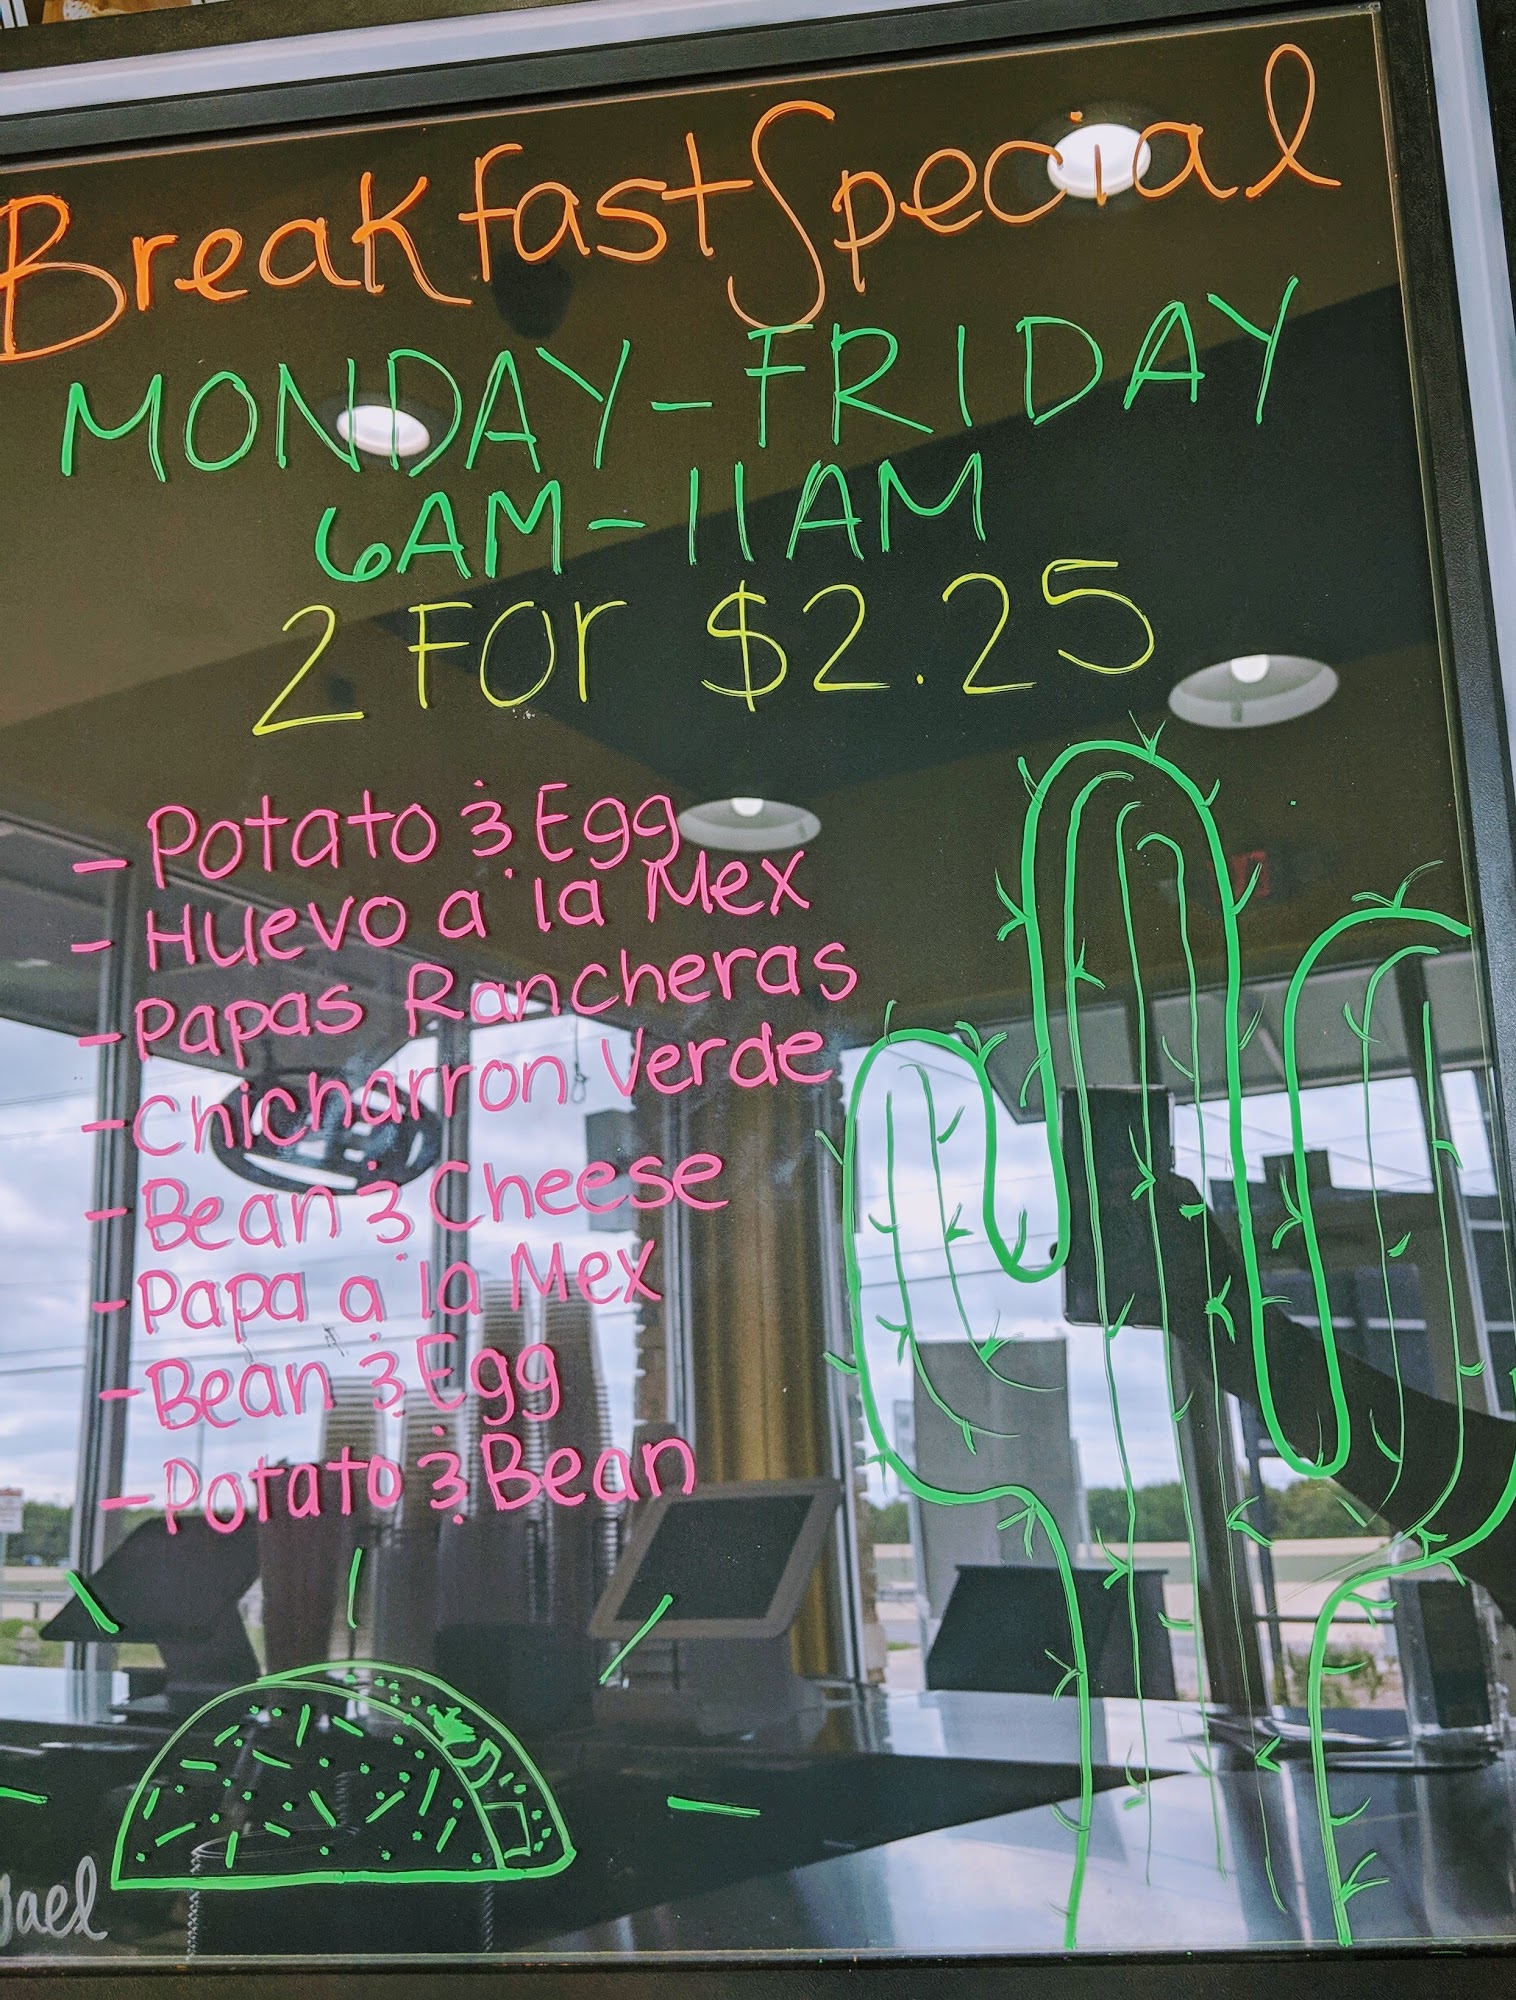 Breakfast Special
MONDAY-FRIDAY
6AM-11AM
2 For $2.25
- Potato & Egg
- Huevo a la Mex
- Papas Rancheras
- Chicharron Verde
- Bean & Cheese
- Papa a la Mex
- Bean & Egg
- Potato & Bean